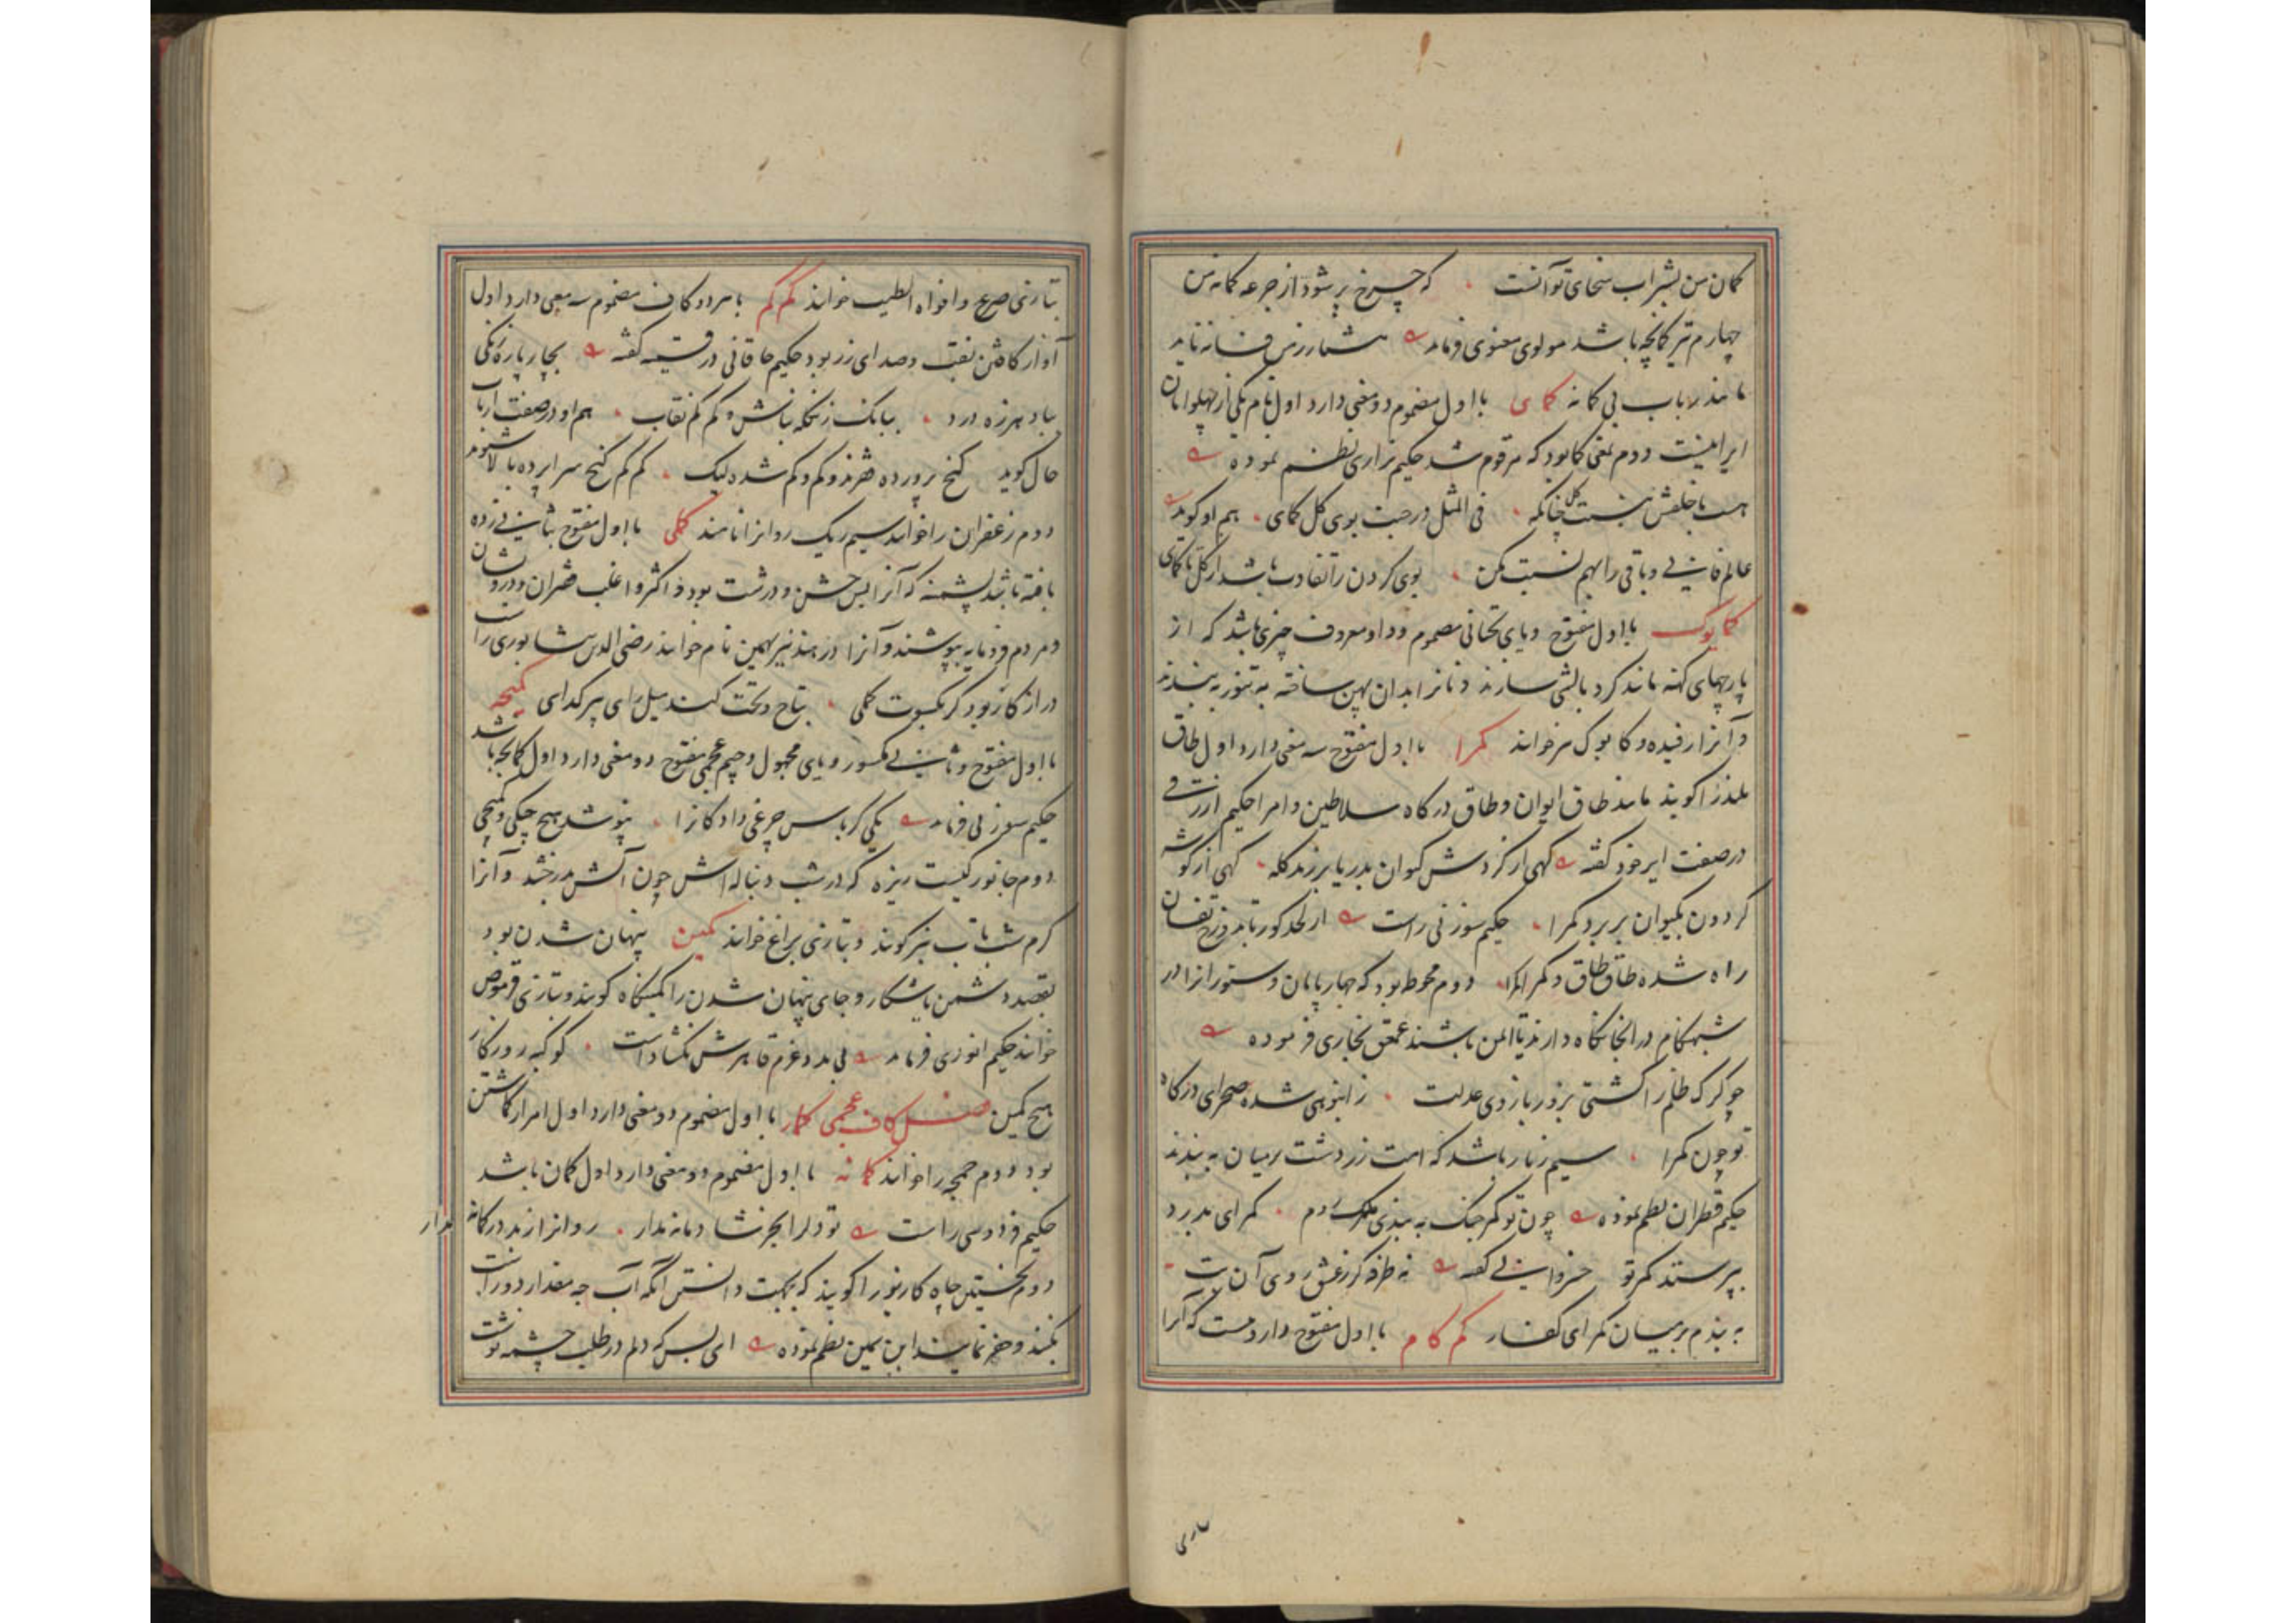 کمان من بشراب سخای تو آنست که چرخ پر شود از جرعه کمانه من
چهارم تیر کمانچه باشد مولوی معنوی فرماید فسانه نماید
مانند رباب بی کمانه کمای با اول مضموم دو معنی دارد اول نام یکی از پهلوانان
ایرانیست دوم بمعنی کما بود که مرقوم شد حکیم نزاری نظم نموده
هست با خلقش نسبت گل چنانکه فی المثل در جنب بوی گل کمای هم او گوید
عالم فانی و باقی را بهم نسبت مکن بوی کردن را تفاوت باشد از گل تا کمای
کمایوک با اول مفتوح و یای تحتانی مضموم و واو معروف چیزی باشد که از
پارچهای کهنه مانند گرد بالشی سازند و نانرا بدان پهن ساخته به تنور به بندند
و آنرا رفیده و کابوک نیز خوانند کمرا با اول مفتوح سه معنی دارد اول طاق
بلند را گویند مانند طاق ایوان و طاق درگاه سلاطین و امرا حکیم ازرقی
در صفت ابر خود گفته گهی از گردش کیوان بدریا برزند کله گهی از گوشه
گردون بکیوان بر برد کمرا حکیم سوزنی راست از لحد گور تا بدوزخ تفسان
راه شده طاق طاق و کمرا کمرا دوم محوطه بود که چهارپایان و ستورانرا در
شبهنگام در آنجا نگاه دارند تا ایمن باشند عمعق بخاری فرموده
چو گرگ ظلم را کشتی بزور بازوی عدلت ز انبوهی شده صحرای درگاه
تو چون کمرا سیم زنار باشد که امت زردشت بر میان به بندند
حکیم قطران نظم نموده چون تو کمر جنگ به بندی ملک روم کمرای بدرد
بپرستد کمر تو خسروانی گفته نه طرفه گر ز عشق روی آن بت
به بندم بر میان کمرای کفار کم کام با اول مفتوح دارویست که آنرا
یاری
بتازی صرع و افواه الطیب خوانند کم کم با هر دو کاف مضموم سه معنی دارد اول
آواز کافتن نقب و صدای زر بود حکیم خاقانی در قسمیه گفته بچار پاره زنگی
بباد هرزه درد ببانگ زنگله نباش و کم کم نقاب هم او در صفت ارباب
حال گوید گنج پرورده فقرند و کم و کم شده لیک کم کم گنج سراپرده بالا شنوند
دوم زعفران را خوانند سیم ریگ روانرا نامند کملی با اول مفتوح بثانی زده
بافته باشد پشمینه که آنرا بس خشن و درشت بود و اکثر و اغلب فقیران و درویشان
و مردم فرومایه بپوشند و آنرا در هند نیز بهمین نام خوانند رضی الدین نیشابوری راست
دراز کار بود گر بکسوت کملی بتاج و تخت کند میل رای پیر گدای کمیچه
با اول مفتوح و ثانی مکسور و یای مجهول و جیم عجمی مفتوح دو معنی دارد اول کمانچه باشد
حکیم سوزنی فرماید یکی کرباس چرغی داد کانرا نپوشد هیچ چنگی و کمیچی
دوم جانورکیست ریزه که در شب دنباله اش چون آتش بدرخشد و آنرا
کرم شب تاب نیز گویند و بتازی یراع خوانند کمین پنهان شدن بود
بقصد دشمن یا شکار و جای پنهان شدن را کمینگاه گویند و بتازی قرموص
خوانند حکیم انوری فرماید بی مدد عزم قاهرش نگشادست کوکبه روزگار
هیچ کمین فصل کاف عجمی کمار با اول مضموم دو معنی دارد اول امر از گماشتن
بود دوم چمچه را خوانند کمانه با اول مضموم دو معنی دارد اول گمان باشد
حکیم فردوسی راست تو دل را بجز شادمانه مدار روانرا ز بد در گمانه مدار
دوم نخستین چاه کاریز را گویند که بجهت دانستن آنکه آب چه مقدار دور است
بکنند و حفر نمایند ابن یمین نظم نموده ای بس که دلم در طلب چشمه نوشت